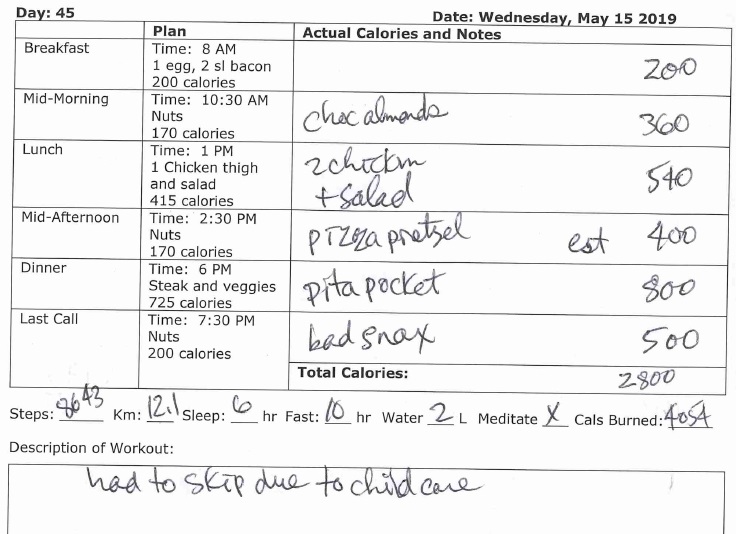 Day: 45 Date: Wednesday, May 15 2019
Plan Actual Calories and Notes
Breakfast Time: 8 AM
1 egg, 2 sl bacon
200 calories 200
Mid-Morning Time: 10:30 AM
Nuts choc almonds
170 calories 360
Lunch Time: 1 PM
1 Chicken thigh 2 chickn
and salad + salad 540
415 calories
Mid-Afternoon Time: 2:30 PM
Nuts pizza pretzel est 400
170 calories
Dinner Time: 6 PM
Steak and veggies pita pocket 800
725 calories
Last Call Time: 7:30 PM
Nuts bad snax 500
200 calories
Total Calories: 2800
Steps: 8643 Km: 12.1 Sleep: 6 hr Fast: 10 hr Water 2 L Meditate X Cals Burned: 4054
Description of Workout:
had to skip due to child care